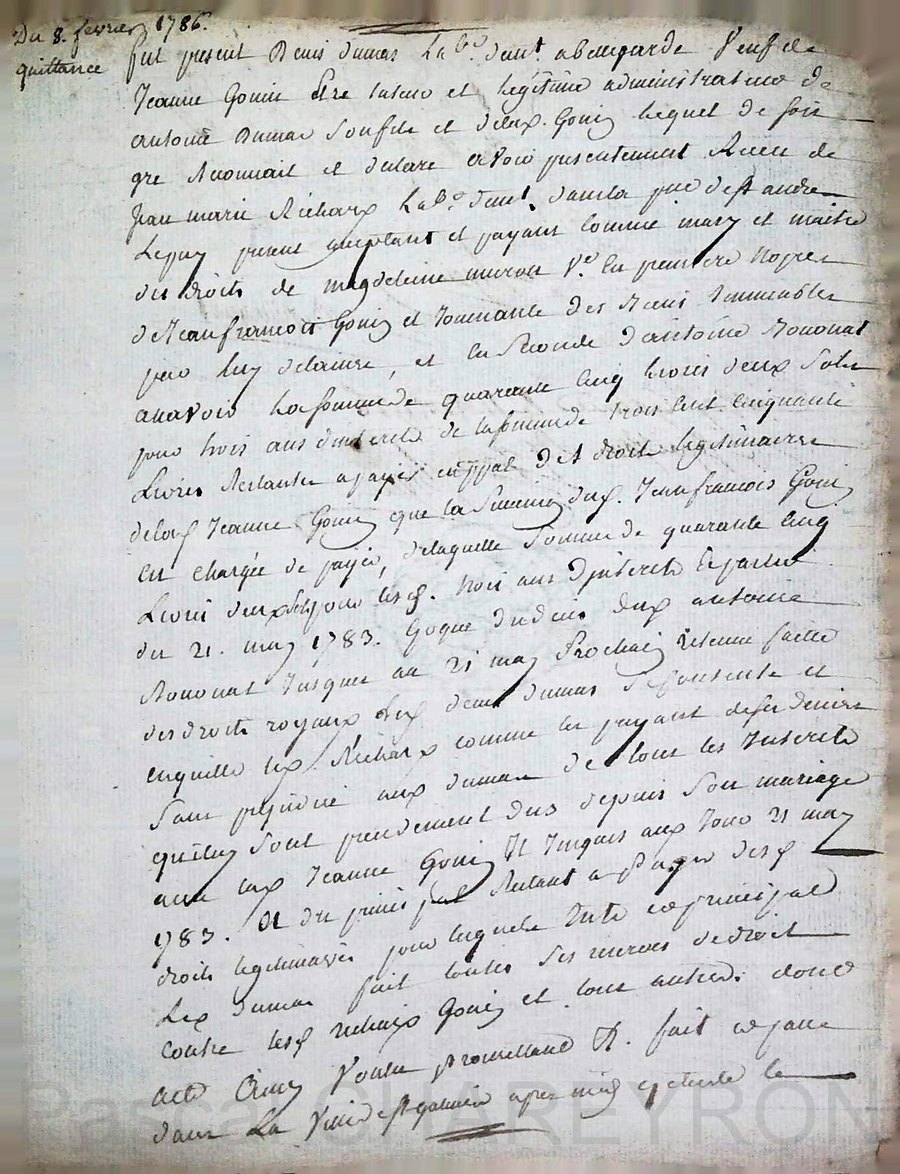 Du 8. fevrier 1786.
quittance
fut present Denis dumas Lab.r d'eut abeaugarde Veuf de
Jeanne Gonin Pere tuteur et legitime administrateur de
antoine Dumas Son fils et deux. Gonin lequel de son
gre Reconnait et declare avoir presentement Receu de
Jean marie Richard Lab.r deut. dans la par de st andre
Lepuy present acceptant et payant comme mary et maitre
des droits de magdeleine V.e en premiere Nopces
de Jean francois Gonin et tenante des Biens Immeubles
par luy delaisses, et en Seconde d'antoine
a savoir La somme de quarante Cinq livres deux Sols
pour trois ans d'interets de la somme de trois cent Cinquante
Livres Restantes a payer en ppal des droits legitimaires
de lad Jeanne Gonin que la dud. Jean francois Gonin
est chargée de payer, de laquelle Somme de quarante Cinq
Livres deux sols pour lesd. trois ans d'interets
du 21. may 1783. dud antoine
Jusques au 21 may Prochain retenue faitte
des droits royaux led denis dumas Se contente et
en quitte led. Richard comme les payant de ses deniers
Sans prejudice aud dumas de tous les Interets
qui luy sont dus depuis Son mariage
avec lad Jeanne Gonin Et Jusques aud Jour 21 may
1783. Et du principal Restant a Payer desd
droits legitimaires pour lesquels Interets et principal
Led dumas fait toutes Ses de droit
Contre lesd richard Gonin et tous autres. dont
acte Ainsy Voulu promettant &. fait et passe
dans La Ville de st galmier apres midy et le
Pascal CHAREYRON